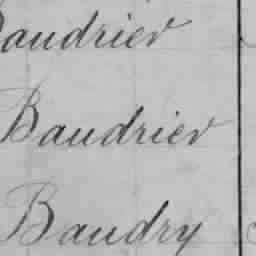 Baudrier
Baudrier
Baudry